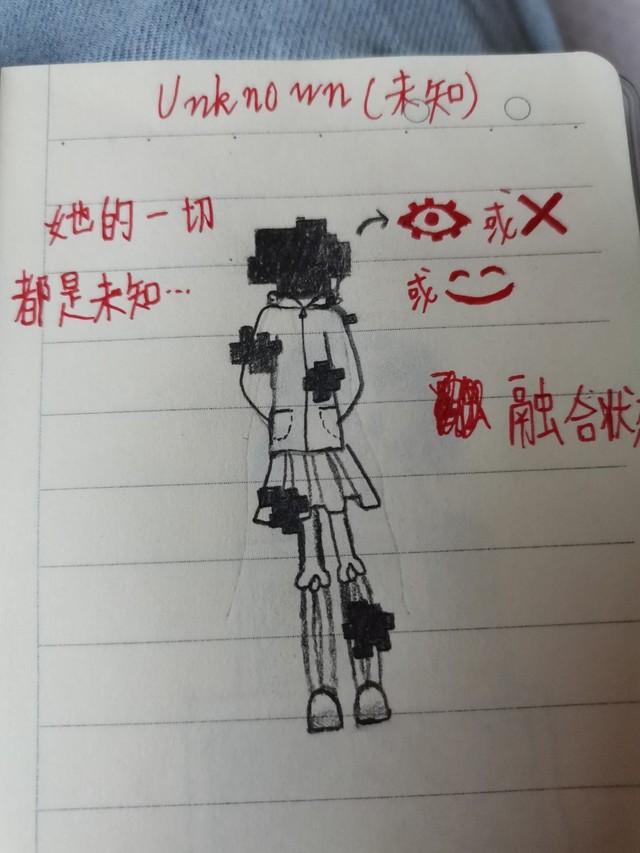 Unknown (未知)
她的一切
都是未知…
或
或
融合状